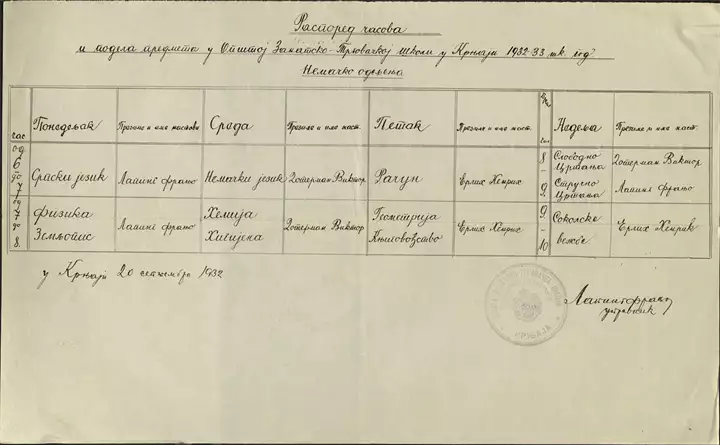 Распоред часова
и подела предмета у Општој Занатско-Трговачкој школи у Крњаји 1932-33 шк. год.
Немачко одељење
час Понедељак Презиме и име настав. Среда Презиме и име наст. Петак Презиме и име наст. час Недеља Презиме и име наст.
од 6 до 7 Српски језик Лапинг Фрањо Немачки језик Дотерман Виктор Рачун Ерлих Хенрих 8 - 9 Слободно Цртање Дотерман Виктор
Стручно Цртање Лапинг Фрањо
од 7 до 8. Физика Лапинг Фрањо Хемија Дотерман Виктор Геометрија Ерлих Хенрих 9 - 10 Соколске Ерлих Хенрих
Земљопис Хигијена Књиговодство вежбе
у Крњаји 20 септембра 1932
Лапинг Фрањо
управник
КРЊАЈА